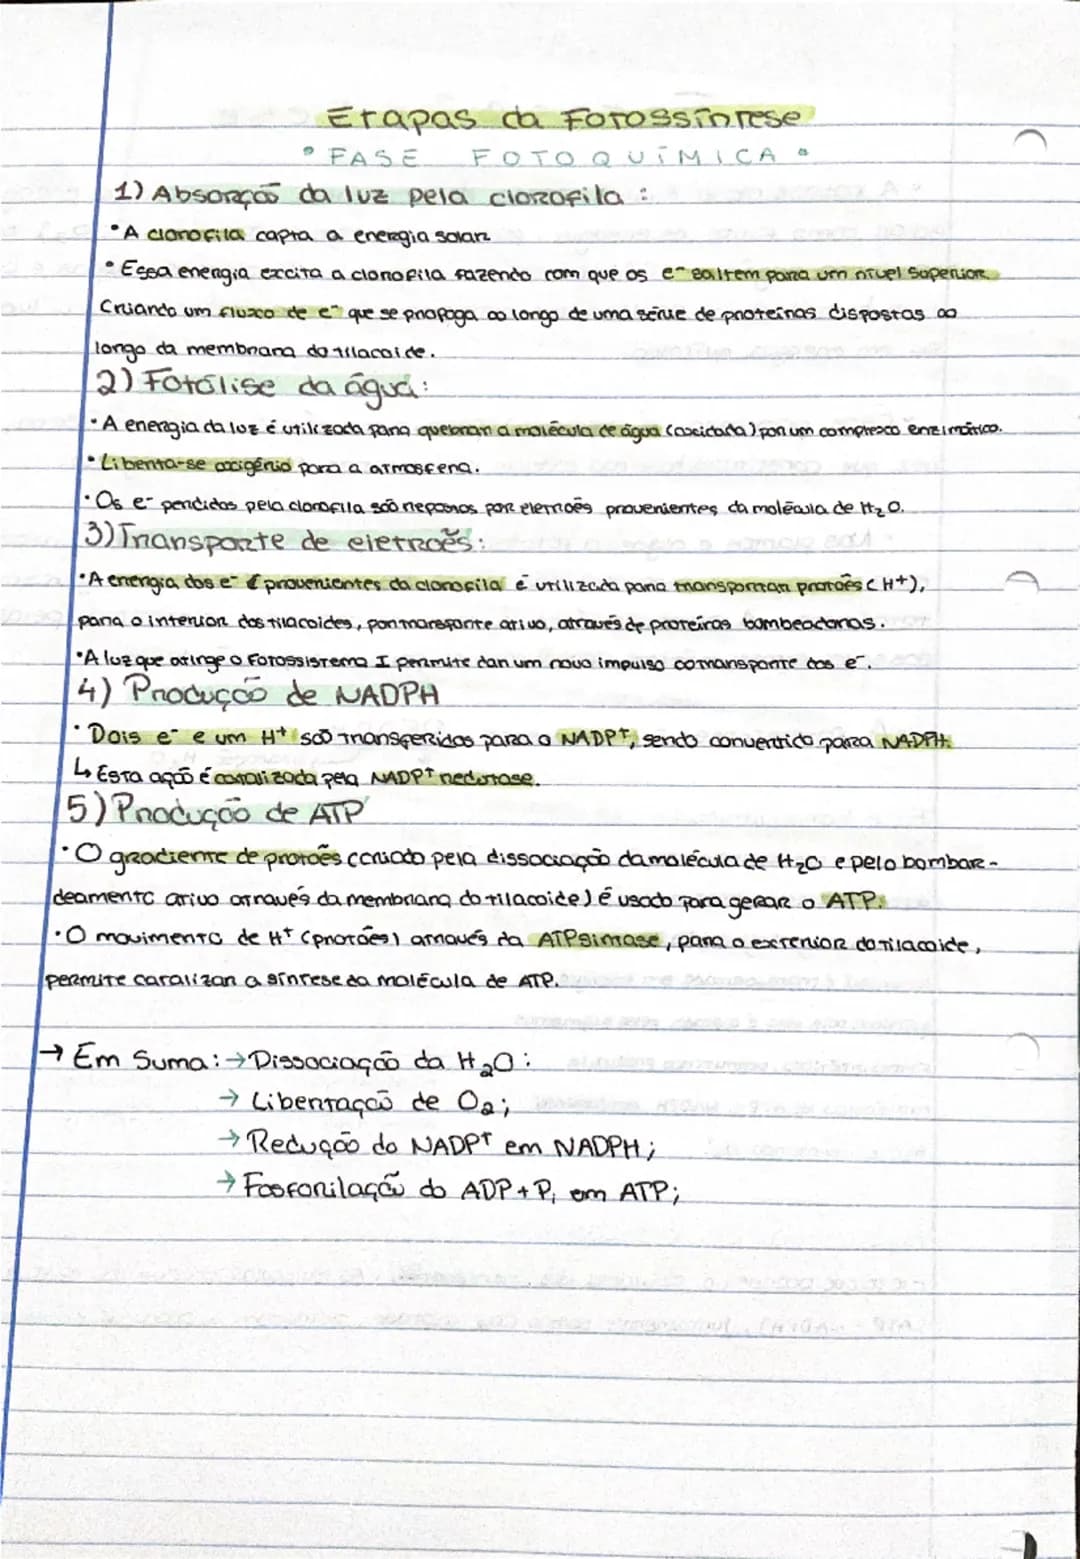 Etapas da Fotossíntese
• FASE FOTOQUÍMICA •
1) Absorção da luz pela clorofila :
• A clorofila capta a energia solar
• Essa energia excita a clorofila fazendo com que os e⁻ saltem para um nível superior.
Criando um fluxo de e⁻ que se propaga ao longo de uma série de proteínas dispostas ao
longo da membrana do tilacoide.
2) Fotólise da água:
• A energia da luz é utilizada para quebrar a molécula de água (oxidada) por um complexo enzimático.
• Liberta-se oxigénio para a atmosfera.
• Os e⁻ perdidos pela clorofila são repostos por eletroẽs provenientes da molécula de H₂O.
3) Transporte de eletroẽs:
• A energia dos e⁻ provenientes da clorofila é utilizada para transportar protoẽs (H+),
para o interior dos tilacoides, por transporte ativo, através de proteínas bombeadoras.
• A luz que atinge o Fotossistema I permite dar um novo impulso ao transporte dos e⁻.
4) Produção de NADPH
• Dois e⁻ e um H⁺ são transferidos para o NADP⁺, sendo convertido para NADPH.
↳ Esta ação é catalizada pela NADP⁺ redutase.
5) Produção de ATP
• O gradiente de protoẽs (criado pela dissociação da molécula de H₂O e pelo bombar-
deamento ativo através da membrana do tilacoide) é usado para gerar o ATP.
• O movimento de H⁺ (protoẽs) através da ATPsintase, para o exterior do tilacoide,
permite catalizar a síntese da molécula de ATP.
→ Em Suma: → Dissociação da H₂O:
→ Libertação de O₂;
→ Redução do NADP⁺ em NADPH;
→ Fosforilação do ADP + Pi em ATP;